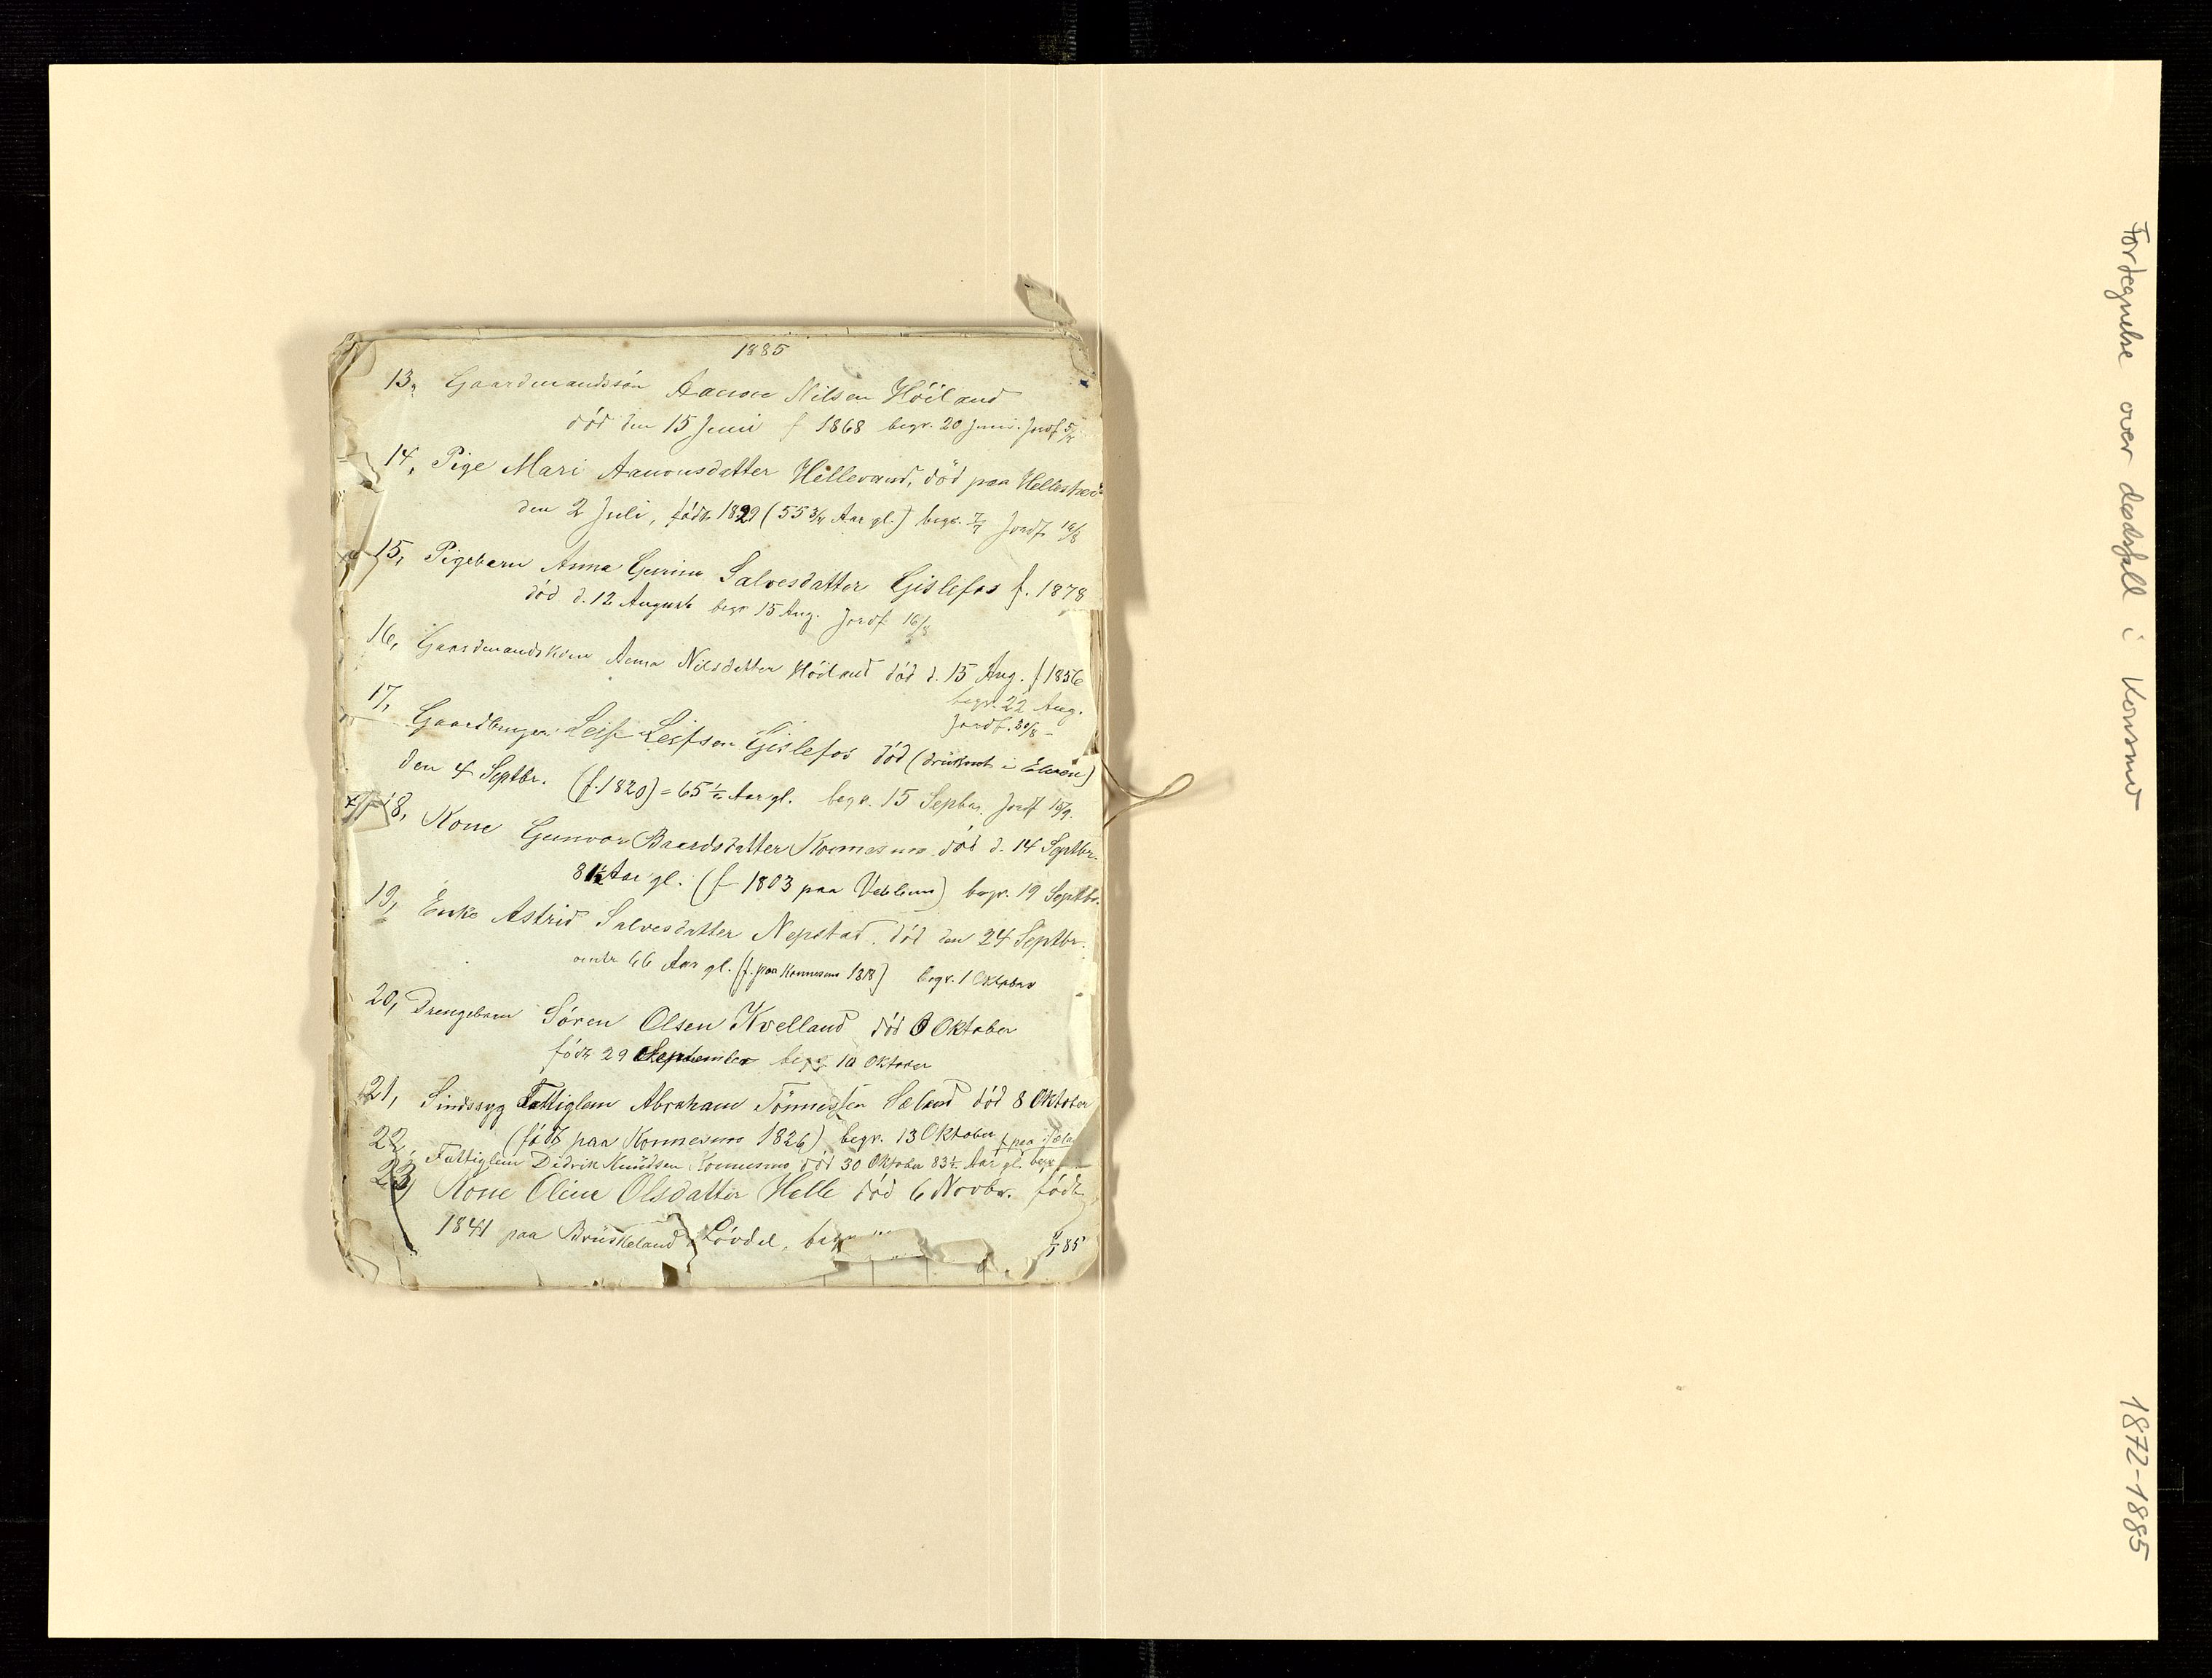 1885
13, Gaardmandssön Aanon Nilsen Höiland
död den 15 Juni f 1868 begr. 20 Juni. Jordf 5/7
14, Pige Mari Aanonsdatter Hellevand, död paa
den 2 Juli, födt 1829 (55 3/4 Aar gl.) begr. 7/7 Jordf 16/8
15, Pigebarn Anna Gurine Salvesdatter Gislefos f. 1878
död d. 12 August begr 15 Aug. Jordf 16/8
16, Gaardmandskone Anna Nilsdatter Höiland död d. 15 Aug. f 1856
begr. 22 Aug.
Jordf. 30/8
17, Gaardbruger Leif Leifsen Gislefos död (druknet i Elven)
den 4 Septbr. (f. 1820) = 65 1/2 Aar gl. begr. 15 Septbr. Jordf
18, Kone Gunvor Baardsdatter Konnesmo död d. 14 Septbr.
81 1/2 Aar gl. (f 1803 paa ) begr. 19 Septbr.
19, Enke Astrid Salvesdatter Nepstad död den 24 Septbr.
omtr 66 Aar gl. (f. paa Konnesmo 1818) begr. 1 Oktober
20, Drengebarn Sören Olsen Kvelland död 6 Oktober
födt 29 September begr 10 Oktober
21, Sindssyg Fattiglem Abraham Tönnessen Sæland död 8 Oktober
(födt paa Konnesmo 1826) begr. 13 Oktober
22, Fattiglem Didrik Knudsen Konnesmo död 30 Oktober 83 1/2 Aar gl. begr f. paa
23, Kone Oline Olsdatter Helle död 6 Novbr. födt
1841 paa Bruskeland i Lövdal, begr 85
Fortegnelse over dødsfall i Konsmo
1872-1885